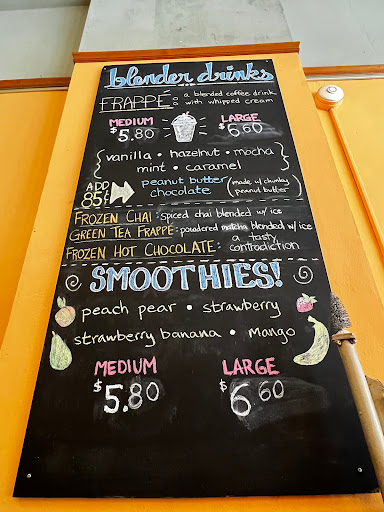 blender drinks
FRAPPÉ: a blended coffee drink
with whipped cream
MEDIUM LARGE
$5.80 $6.60
{vanilla • hazelnut • mocha
mint • caramel}
ADD 85¢ peanut butter chocolate (made w/ chunky peanut butter)
FROZEN CHAI: spiced chai blended w/ ice
GREEN TEA FRAPPE: powdered matcha blended w/ ice
FROZEN HOT CHOCOLATE: a tasty contradiction
SMOOTHIES!
peach pear • strawberry
strawberry banana • mango
MEDIUM LARGE
$5.80 $6.60